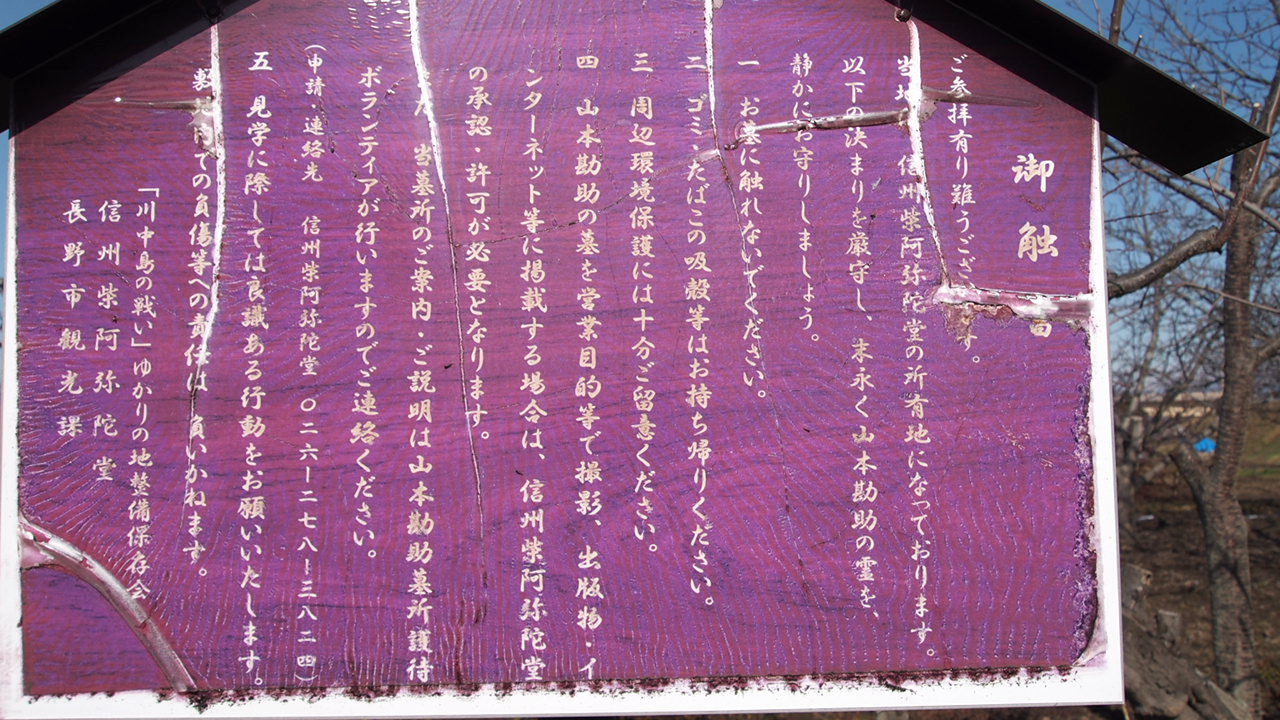 御触書
ご参拝有り難うございます。
当地、信州柴阿弥陀堂の所有地になっております。
以下の決まりを厳守し、末永く山本勘助の霊を、
静かにお守りしましょう。
一 お墓に触れないでください。
二 ゴミ・たばこの吸殻等はお持ち帰りください。
三 周辺環境保護には十分ご留意ください。
四 山本勘助の墓を営業目的等で撮影、出版物・イ
ンターネット等に掲載する場合は、信州柴阿弥陀堂
の承認・許可が必要となります。
また、当墓所のご案内・ご説明は山本勘助墓所護待
ボランティアが行いますのでご連絡ください。
(申請・連絡先 信州柴阿弥陀堂 〇二六ー二七八ー三八二四)
五 見学に際しては良識ある行動をお願いいたします。
での負傷等への責任は、負いかねます。
「川中島の戦い」ゆかりの地整備保存会
信州柴阿弥陀堂
長野市観光課